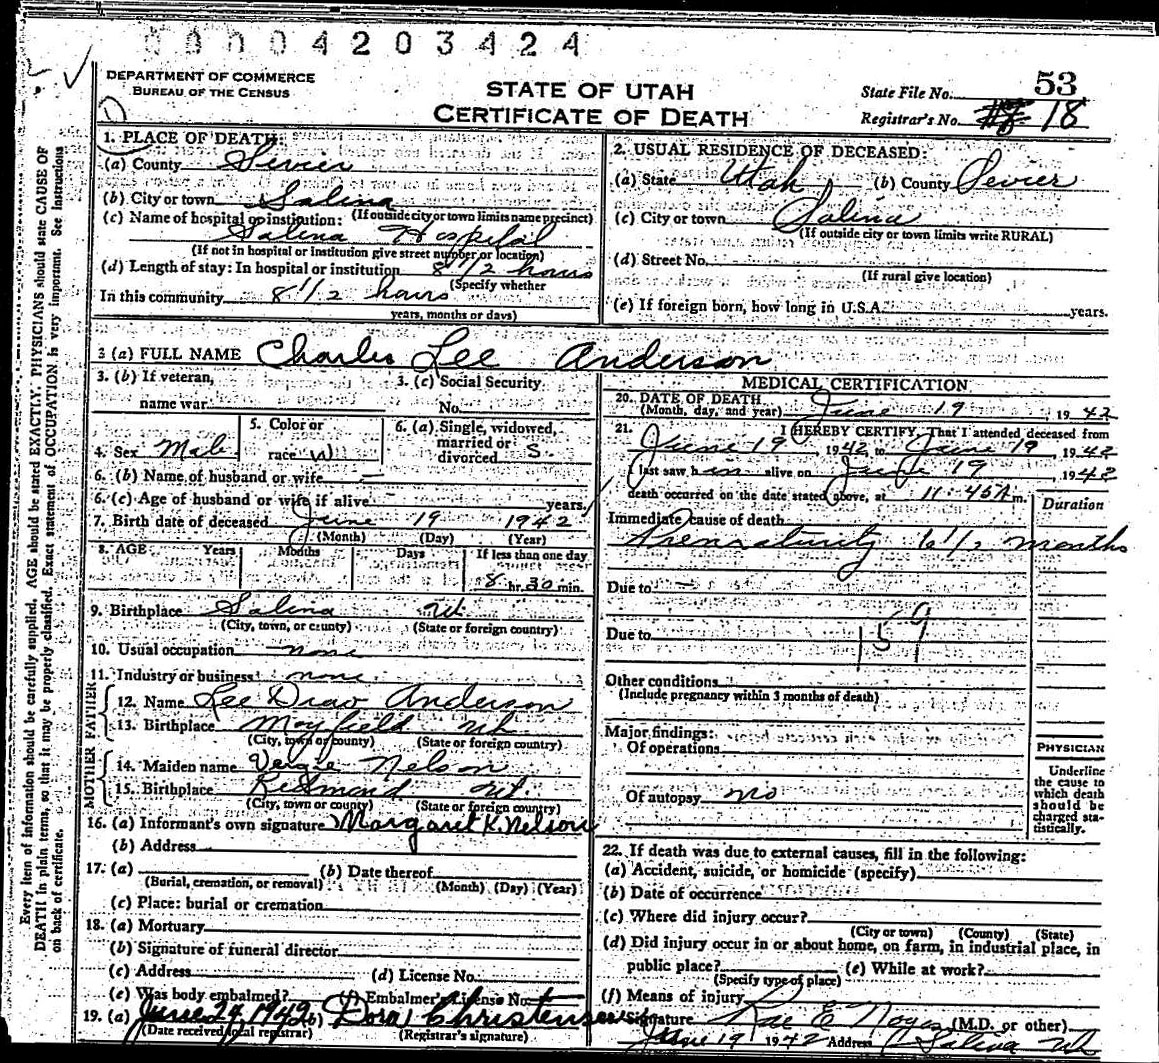 00004203424
DEPARTMENT OF COMMERCE
BUREAU OF THE CENSUS
STATE OF UTAH
CERTIFICATE OF DEATH
State File No. 53
Registrar's No. 18
Every item of information should be carefully supplied. AGE should be stated EXACTLY. PHYSICIANS should state CAUSE OF
DEATH in plain terms, so that it may be properly classified. Exact statement of OCCUPATION is very important. See instructions
on back of certificate.
1. PLACE OF DEATH:
(a) County Sevier
(b) City or town Salina
(If outside city or town limits name precinct)
(c) Name of hospital or institution:
Salina Hospital
(If not in hospital or institution give street number or location)
(d) Length of stay: In hospital or institution 8 1/2 hours
(Specify whether
In this community 8 1/2 hours
years, months or days)
2. USUAL RESIDENCE OF DECEASED:
(a) State Utah (b) County Sevier
(c) City or town Salina
(If outside city or town limits write RURAL)
(d) Street No.
(If rural give location)
(e) If foreign born, how long in U.S.A. years.
3 (a) FULL NAME Charles Lee Anderson
3. (b) If veteran,
name war
3. (c) Social Security
No.
4. Sex Male
5. Color or
race W
6. (a) Single, widowed,
married or
divorced S.
6. (b) Name of husband or wife
6. (c) Age of husband or wife if alive years.
7. Birth date of deceased June 19 1942
(Month) (Day) (Year)
8. AGE Years Months Days If less than one day
8 hr. 30 min.
9. Birthplace Salina Ut.
(City, town, or county) (State or foreign country)
10. Usual occupation none
11. Industry or business none
FATHER
12. Name Lee Anderson
13. Birthplace Mayfield Ut.
(City, town or county) (State or foreign country)
MOTHER
14. Maiden name Nelson
15. Birthplace Redmond Ut.
(City, town or county) (State or foreign country)
16. (a) Informant's own signature Margaret K. Nelson
(b) Address
17. (a) (b) Date thereof
(Burial, cremation, or removal) (Month) (Day) (Year)
(c) Place: burial or cremation
18. (a) Mortuary
(b) Signature of funeral director
(c) Address (d) License No.
(e) Was body embalmed? (f) Embalmer's License No.
19. (a) June 29, 1942 (b) Dora Christensen
(Date received local registrar) (Registrar's signature)
MEDICAL CERTIFICATION
20. DATE OF DEATH
(Month, day, and year) June 19, 1942
21. I HEREBY CERTIFY, That I attended deceased from
June 19 1942 to June 19, 1942
I last saw him alive on June 19 1942
death occurred on the date stated above, at 11:45 A m.
Duration
Immediate cause of death
Prematurity 6 1/2 months
Due to
159
Due to
Other conditions
(Include pregnancy within 3 months of death)
Major findings:
Of operations
Of autopsy no
PHYSICIAN
Underline
the cause to
which death
should be
charged sta-
tistically.
22. If death was due to external causes, fill in the following:
(a) Accident, suicide, or homicide (specify)
(b) Date of occurrence
(c) Where did injury occur?
(City or town) (County) (State)
(d) Did injury occur in or about home, on farm, in industrial place, in
public place? (e) While at work?
(Specify type of place)
(f) Means of injury
Signature Rae E Noyes (M.D. or other)
June 19 1942 Address Salina Ut.